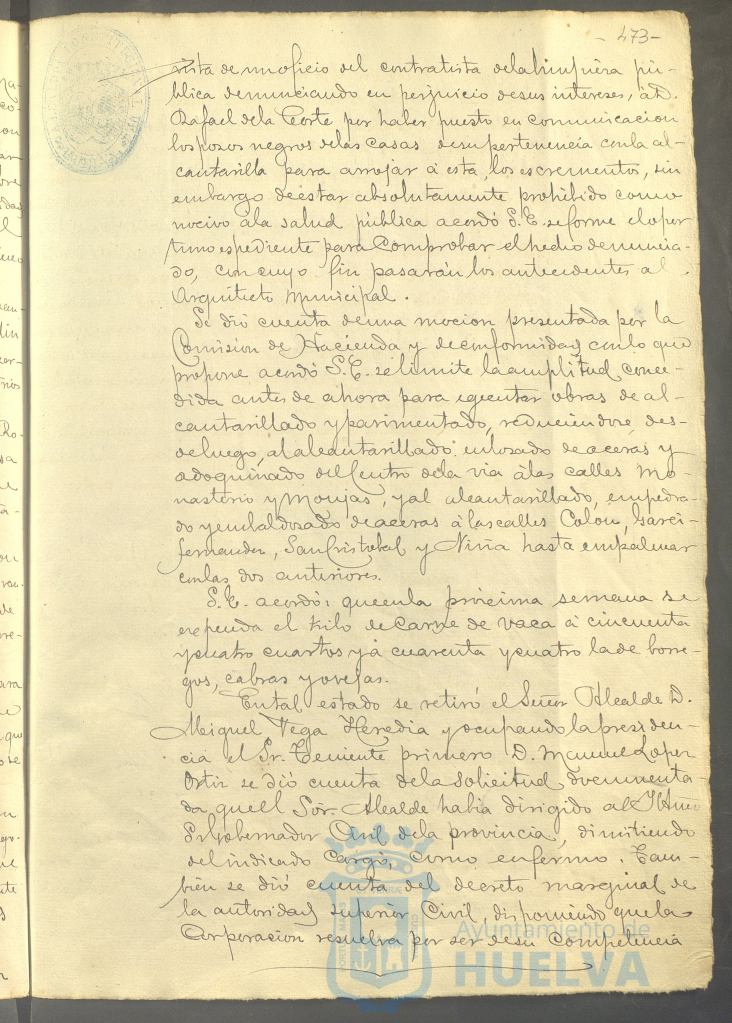 -473-
vista de un oficio del contratista de la limpiera pú-
blica denunciando en perjuicio de sus intereses, á D.
Rafael de la Corte por haber puesto en comunicacion
los pozos negros de las casas de su pertenencia con la al-
cantarilla para arrojar á esta, los escrementos, sin
embargo de estar absolutamente prohibido como
nocivo á la salud pública acordó S. E. se forme el opor
tuno espediente para comprobar el hecho denuncia-
do, con cuyo fin pasarán los antecedentes al
Arquitecto Municipal.
Se dió cuenta de una mocion presentada por la
Comision de Hacienda y de conformidad con lo que
propone acordó S. E. se limite la amplitud conce-
dida antes de ahora para egecutar obras de al-
cantarillado y parimentado, reduciendose, des-
de luego, al alcantarillado enlosado de aceras y
adoquinado del Centro de la via á las calles Mo-
nasterio y Monjas, y al alcantarillado, empedra-
do y embaldosado de aceras á las calles Colon, Garci-
fernandez, San Cristobal y Niña hasta empalmar
con las dos anteriores.
S. E. acordó: que en la prócima semana se
expenda el kilo de carne de vaca á cincuenta
y cuatro cuartos y á cuarenta y cuatro la de borre-
gos, cabras y ovejas.
En tal estado se retiró el Señor Alcalde D.
Miguel Vega Heredia y ocupando la presiden-
cia el Sr. Teniente primero D. Manuel Lopez
Ortiz se dió cuenta de la solicitud documenta-
da que el Sor. Alcalde habia dirigido al Iltmo
Sr. Gobernador Civil de la provincia, dimitiendo
del indicado Cargo, como enfermo. Tam-
bien se dió cuenta del decreto marginal de
la autoridad superior Civil, disponiendo que la
Corporacion resuelva por ser de su competencia
Ayuntamiento de
HUELVA